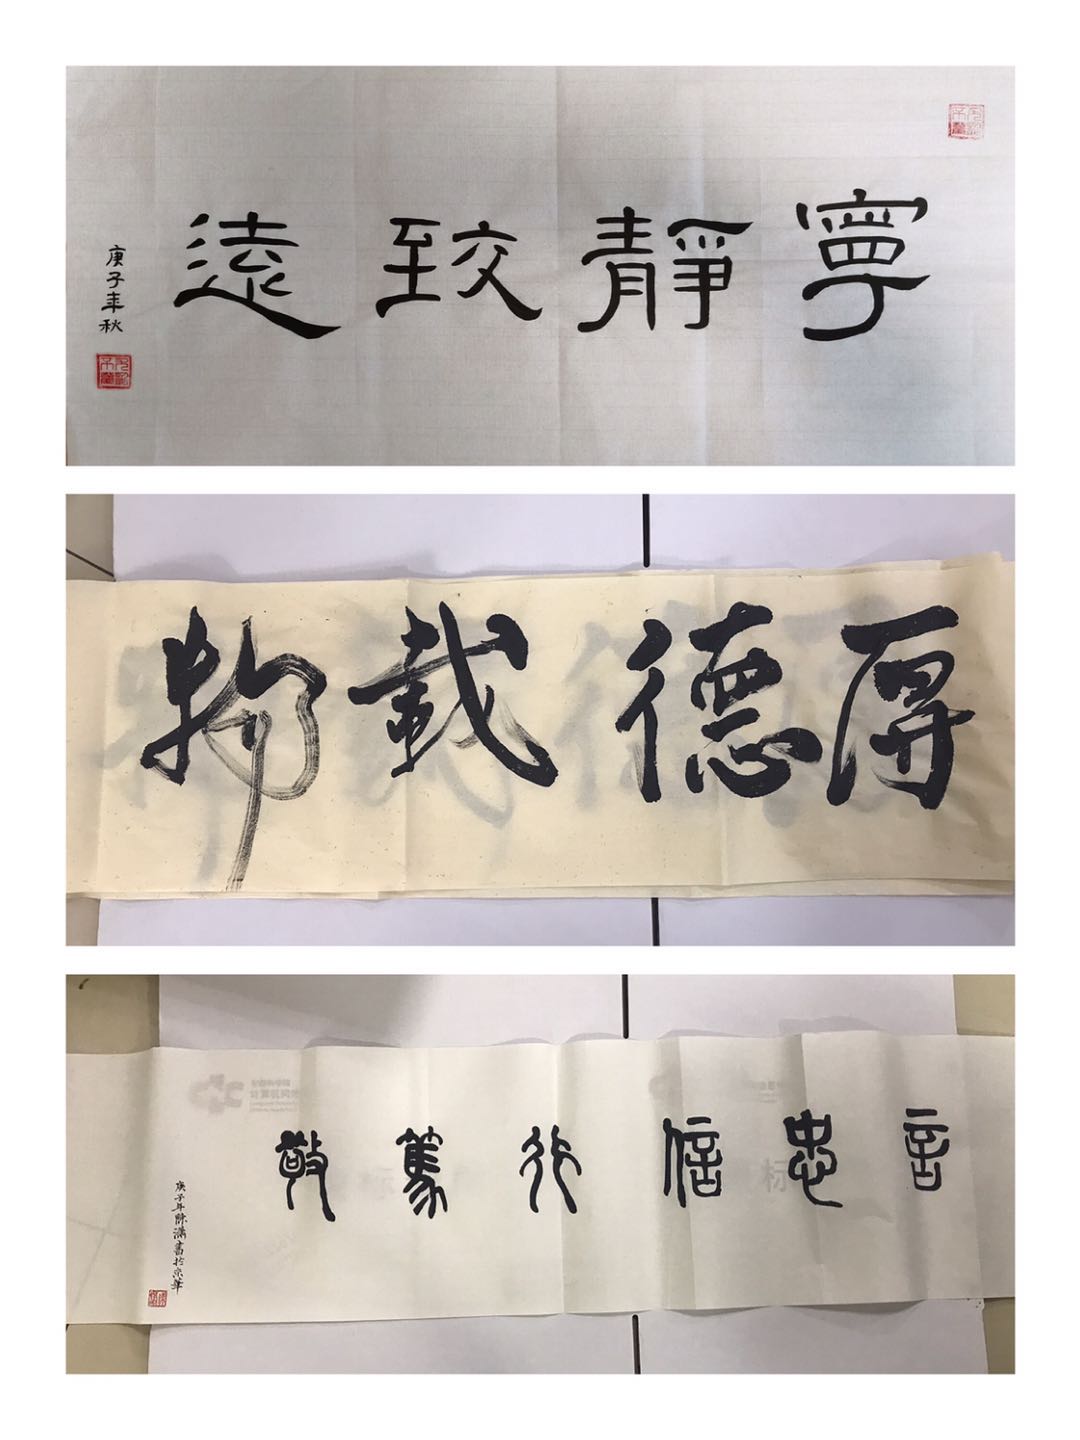 寧靜致遠
庚子年秋
厚德載物
言忠信行篤敬
庚子年陈書於京華